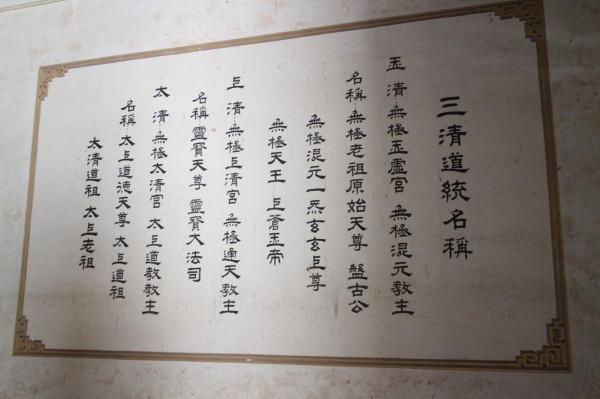 三清道統名稱
玉清無極玉虛宮 無極混元教主
名稱無極老祖原始天尊 盤古公
無極混元一炁玄玄上尊
無極天王 上蒼玉帝
上清無極上清宮 無極通天教主
名稱靈寶天尊 靈寶大法司
太清無極太清宮 太上道教教主
名稱太上道德天尊 太上道祖
太清道祖 太上老祖